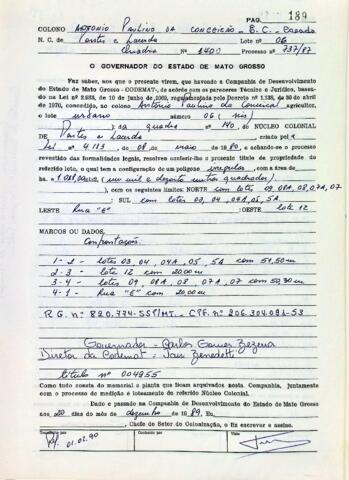 PAG. 189
COLONO Antonio Paulino da Conceição - B. C. - Casado
N. C. de Pontes e Lacerda Lote n.º 06
Quadra nº 1400 Processo nº 737/87
O GOVERNADOR DO ESTADO DE MATO GROSSO
Faz saber, aos que o presente virem, que havendo a Companhia de Desenvolvimento
do Estado de Mato Grosso - CODEMAT-, de acôrdo com os pareceres Técnico e Jurídico, baseado
na Lei nº 2.929, de 10 de junho de 1969, regulamentada pelo Decreto nº 1.138, de 30 de abril
de 1970, concedido, ao colono Antônio Paulino da Conceição, agricultor,
o lote urbano número 06 (seis)
) na quadra nº 140, DO NÚCLEO COLONIAL
DE Pontes e Lacerda criado
Lei nº 4.113, de 08 de maio de 1980, e achando-se o processo
revestido das formalidades legais, resolveu conferir-lhe o presente título de propriedade do
referido lote, o qual tem a configuração de um polígono irregular, com a área de
(um mil e dezoito metros quadrados).
), com os seguintes limites: NORTE com lotes 09, 08A, 08, 07A, 07
; SUL com lotes 03, 04, 04A, 05, 5A
LESTE Rua "E" ; OESTE lote 12
MARCOS OU DADOS.
Confrontações:
1 - 2 - lotes 03, 04, 04A, 05, 5A com 51,50 m
2 - 3 - lote 12 com 20,00 m
3 - 4 - lotes 09, 08A, 08, 07A, 07 com 50,30 m
4 - 1 - Rua "E" com 20,00 m
R G. nº 820.774-SSP/MT. - CPF. nº 206.304.091-53
Governador - Carlos Gomes Bezerra
Diretor da Codemat - Jair Benedetti
título nº 004955
Como tudo consta do memorial e planta que ficam arquivados nesta Companhia, juntamente
com o processo de medição e loteamento do referido Núcleo Colonial.
Dado e passado na Companhia de Desenvolvimento do Estado de Mato Grosso
aos 20 dias do mês de dezembro de 1989. Eu,
, Chefe do Setor de Colonização, o fiz escrever e assino.
Conferido por Visto
01.02.90